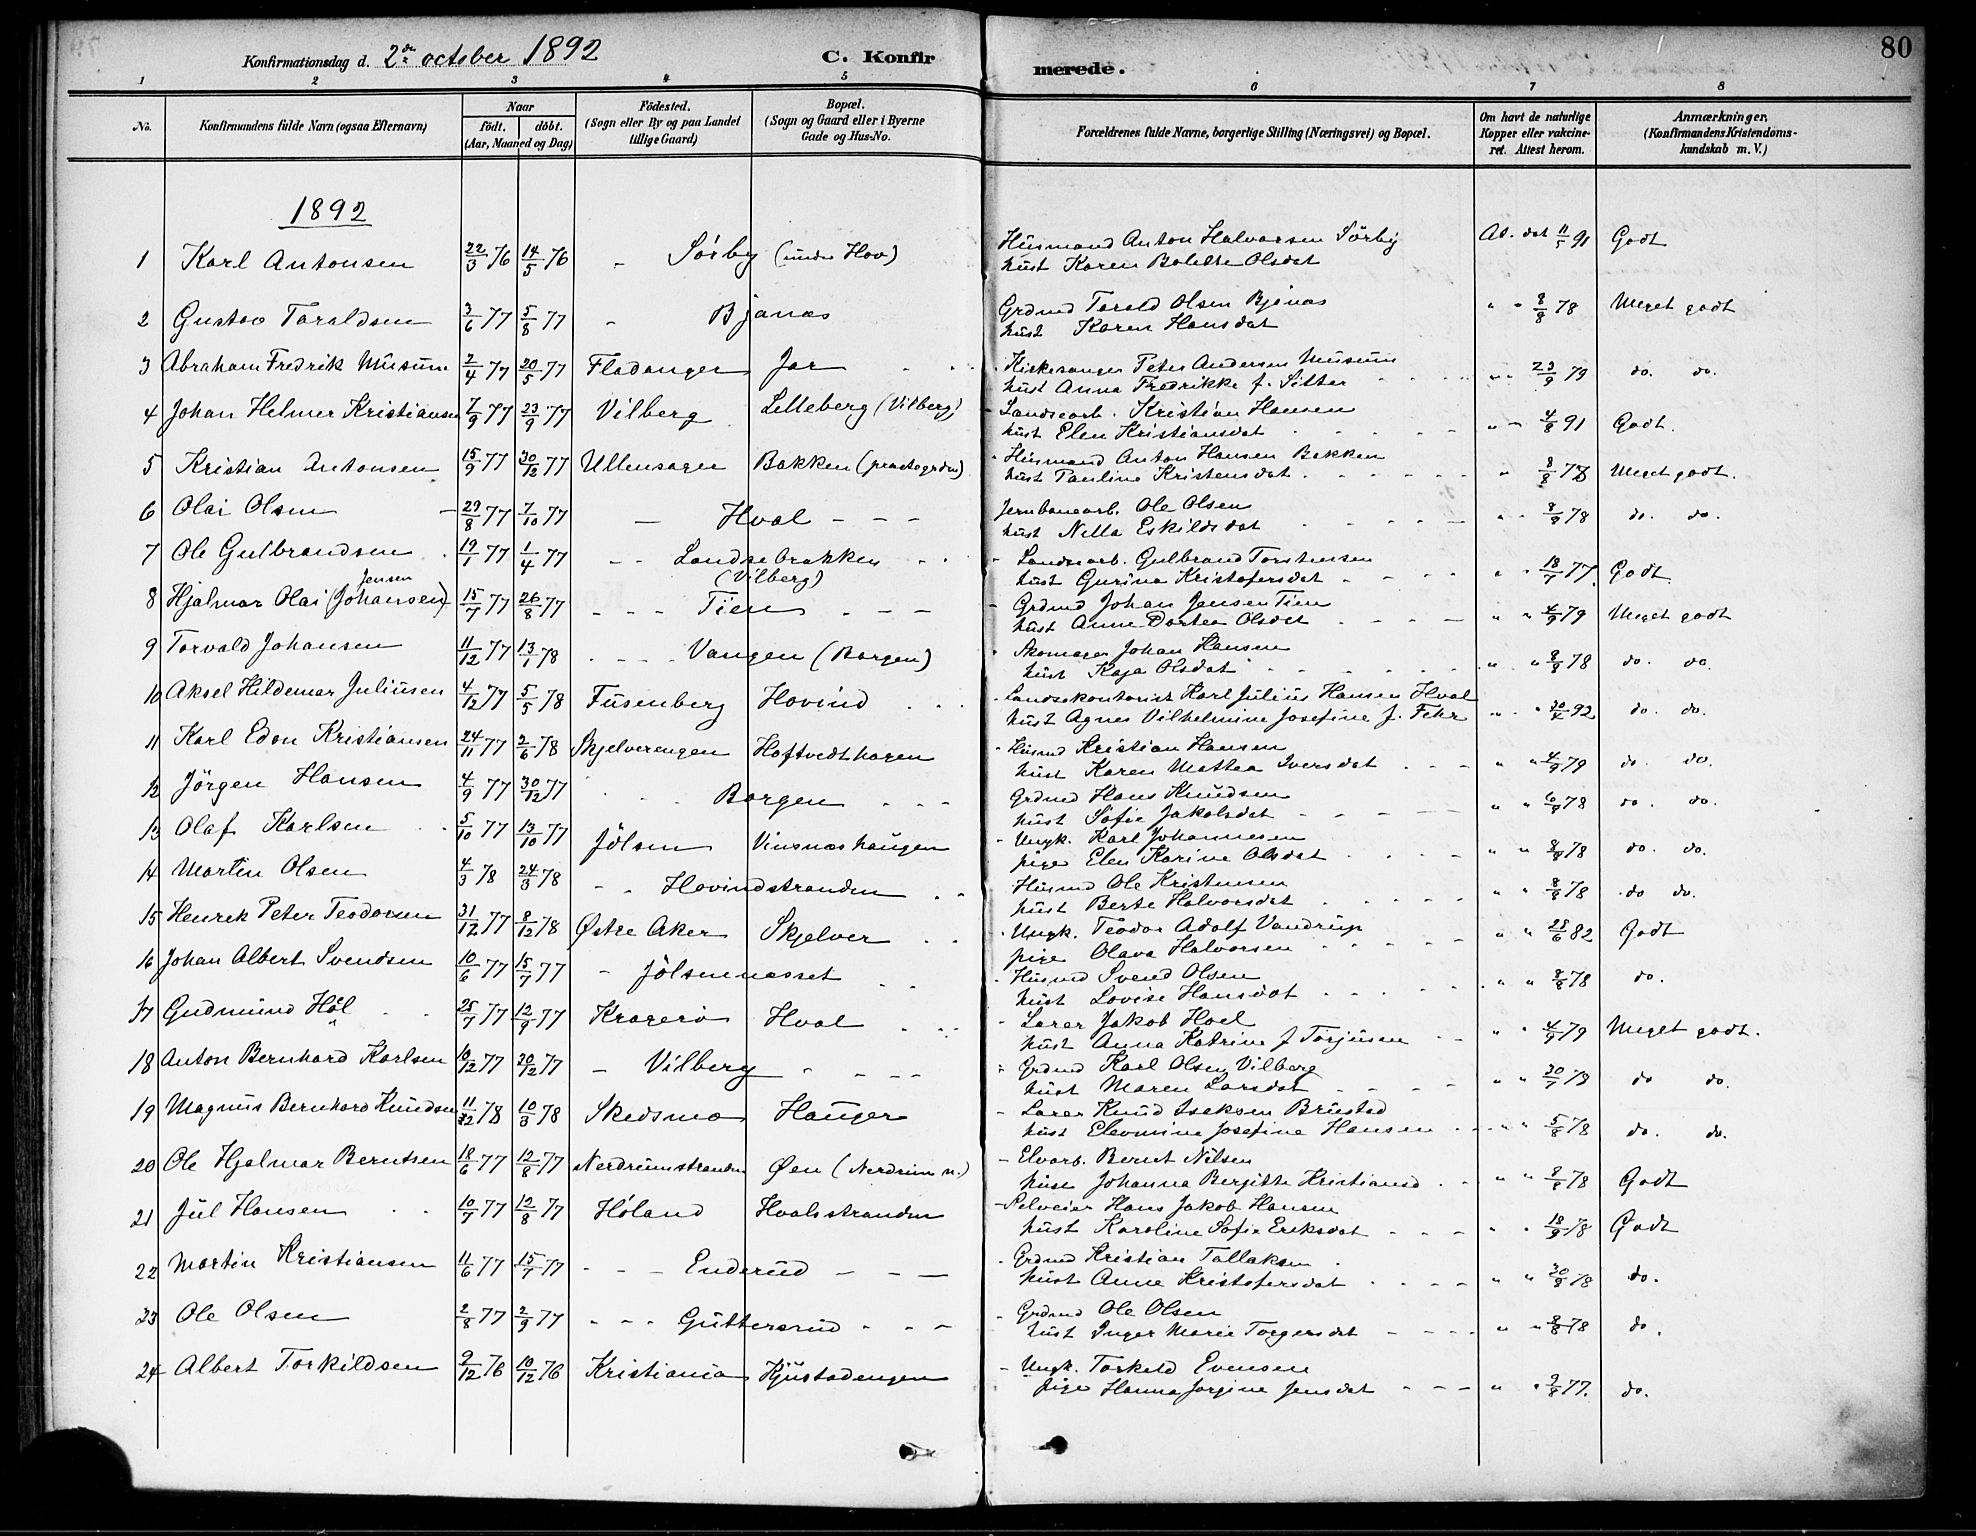 80
Konfirmationsdag d. 2de october 1892 C. Konfirmerede.
1 2 3 4 5 6 7 8
No. Konfirmandens fulde Navn (ogsaa Efternavn) Naar født. døbt. (Aar, Maaned og Dag) Fødested. (Sogn eller By og paa Landet tillige Gaard) Bopæl. (Sogn og Gaard eller i Byerne Gade og Hus-No. Forældrenes fulde Navne, borgerlige Stilling (Næringsvei) og Bopæl. Om havt de naturlige Kopper eller vakcineret. Attest herom. Anmærkninger. (Konfirmandens Kristendomskundskab m. V.)
1892
1 Karl Antonsen 22/3 76 14/5 76 - Sörby (under Hov) Husmand Anton Halvorsen Sörby At. dat 11/5 91 Godt
hust Karen Bolette Olsdat
2 Gustav Taraldsen 3/6 77 5/8 77 - Bjanæs Grdmd Tarald Olsen Bjönæs " " 8/8 78 Meget godt
hust Karen Hansdat
3 Abraham Fredrik Musum 2/4 77 20/5 77 Fladanger Jar Kirkesanger Peter Andersen Musum " " 23/9 79 do. do.
hust Anna Fredrikke f. Sitter
4 Johan Helmer Kristiansen 7/9 77 23/9 77 Vilberg Lilleberg (Vilberg) Landsearb. Kristian Hansen " " 4/8 91 Godt.
hust Elen Kristiansdat
5 Kristian Antonsen 15/9 77 30/12 77 Ullensager Bakken (præstegrden) Husmand Anton Hansen Bakken " 8/8 78 Meget godt.
hust Pauline Kristensdat
6 Olai Olsen 29/8 77 7/10 77 - Hval - - - Jernbanearb. Ole Olsen " " 8/9 78 do. do.
hust Nella Eskildsdat
7 Ole Gulbrandsen 19/1 77 1/4 77 - - Landsebrakken Landsearb. Gulbrand Torstensen " " 18/7 77 Godt
(Vilberg) hust Gurina Kristofersdat
Jensen
8 Hjalmar Olai (Johansen) 15/7 77 26/8 77 - - - Tien - - - Grdmd Johan Jensen Tien " " 4/9 79 Meget godt
hust Anne Dortea Olsdat
9 Torvald Johansen 11/12 77 13/1 78 - - - Vangen (Borgen) Skomager Johan Hansen " " 8/8 78 do. do.
hust Kaja Olsdat
10 Aksel Hildemar Juliusen 4/12 77 5/5 78 Fusenberg Hovind Landsekontorist Karl Julius Hansen Hval " " 30/4 92 do. do.
hust Agnes Vilhelmine Josefine f. Fehr
11 Karl Edon Kristiansen 24/11 77 2/6 78 Skjelverengen Hoftvedthagen Husmd Kristian Hansen " " 4/9 79 do. do.
hust Karen Mattea Iversdat
12 Jörgen Hansen 4/9 77 30/12 77 - - - Borgen - - - Grdmd Hans Knudsen " " 6/9 78 do. do.
hust Sofie Jakobsdat
13 Olaf Karlsen 5/10 77 13/10 77 Jölsen Vinsnæshaugen Ungk. Karl Johannesen " " 8/8 78 do. do.
pige Elen Karine Olsdat
14 Martin Olsen 4/3 78 24/3 78 - - Hovindstranden Husmd Ole Kristensen " " 8/8 78 do do.
hust Berte Halvorsdat
15 Henrik Peter Teodorsen 31/12 77 8/12 78 Østre Aker Skjelver Ungk. Teodor Adolf Vandrup " " 28/6 82 Godt
pige Olava Halvorsen
16 Johan Albert Svendsen 10/6 77 15/7 77 - Jölsennæsset Husmd Svend Olsen " " 8/8 78 do.
hust Lovise Hansdat
17 Gudmund Höl 25/7 77 12/9 77 Kragerö Hval Lærer Jakob Hoel " " 4/9 79 Meget godt.
hust Anna Katrine f Torjusen
18 Anton Bernhard Karlsen 10/12 77 30/12 77 - Vilberg Grdmd Karl Olsen Vilberg " " 30/7 79 do do.
hust Maren Larsdat
19 Magnus Bernhard Knudsen 11/2 78 10/3 78 Skedsmo Hauger Lærer Knud Iseksen Brusted " " 5/8 78 do. do.
hust Eleonmine Josefine Hansen
20 Ole Hjalmar Berntsen 18/6 77 12/8 77 Nerdrumstranden Øen (Nerdrum n.) Elvarb. Bernt Nilsen " " 8/8 78 Godt
hust Johanna Bergitte Kristiansd
21 Jul Hansen 10/7 77 12/8 77 Höland Hvalsstranden Selveier Hans Jakob Hansen " 18/9 78 Godt
hust Karoline Sofie Eriksdat
22 Martin Kristiansen 11/6 77 15/7 77 - - - Enderud - - - Grdmd Kristian Tallaksen " " 30/8 78 do.
hust Anne Kristofersdat
23 Ole Olsen 2/8 77 2/9 77 - - - Guttersrud - - - Grdmd Ole Olsen " " 8/8 78 do.
hust Inger Marie Torgersdat
24 Albert Torkildsen 9/12 76 10/12 76 Kristiania Hjustadengen Ungk. Torkild Evensen " " 9/8 77. do.
pige Hanna Jorgine Jensdat